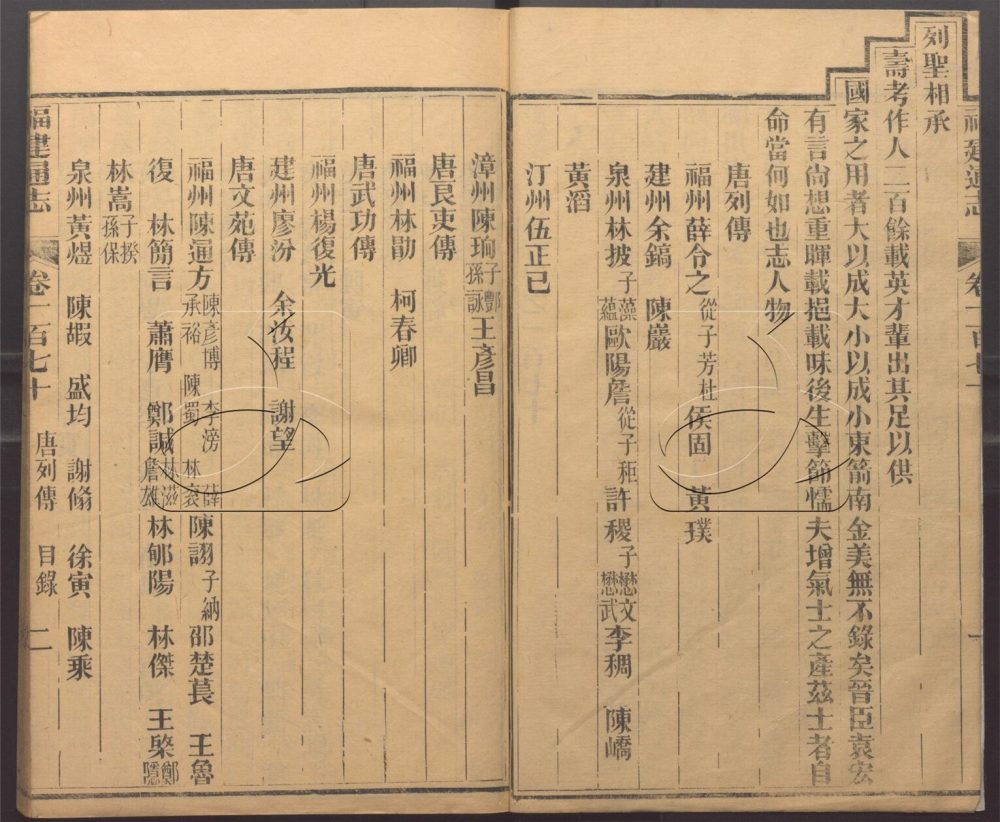 列聖相承
壽考作人二百餘載英才輩出其足以供
國家之用者大以成大小以成小東箭南金美無不錄矣晉臣袁宏
有言尚想重暉載挹載味後生擊節懦夫增氣士之產茲土者自
命當何如也志人物
唐列傳
福州薛令之從子芳杜侯固 黃璞
建州余鎬 陳巖
泉州林披子藻蘊歐陽詹從子秬許稷子懋文懋武李稠 陳嶠
黃滔
汀州伍正己
漳州陳珦子酆孫詠王彥昌
唐良吏傳
福州林勛 柯春卿
唐武功傳
福州楊復光
建州廖汾 余汝程 謝望
唐文苑傳
福州陳通方陳彥博 李滂 林 薛承裕 陳蜀 林袞陳詡子納 邵楚萇 王魯
復 林簡言 蕭膺 鄭諴林滋詹雄林郇陽 林傑 王棨鄭隱
林嵩子揆孫保
泉州黃煜 陳嘏 盛均 謝翛 徐寅 陳乘
福建通志 卷一百七十 唐列傳 目錄 二